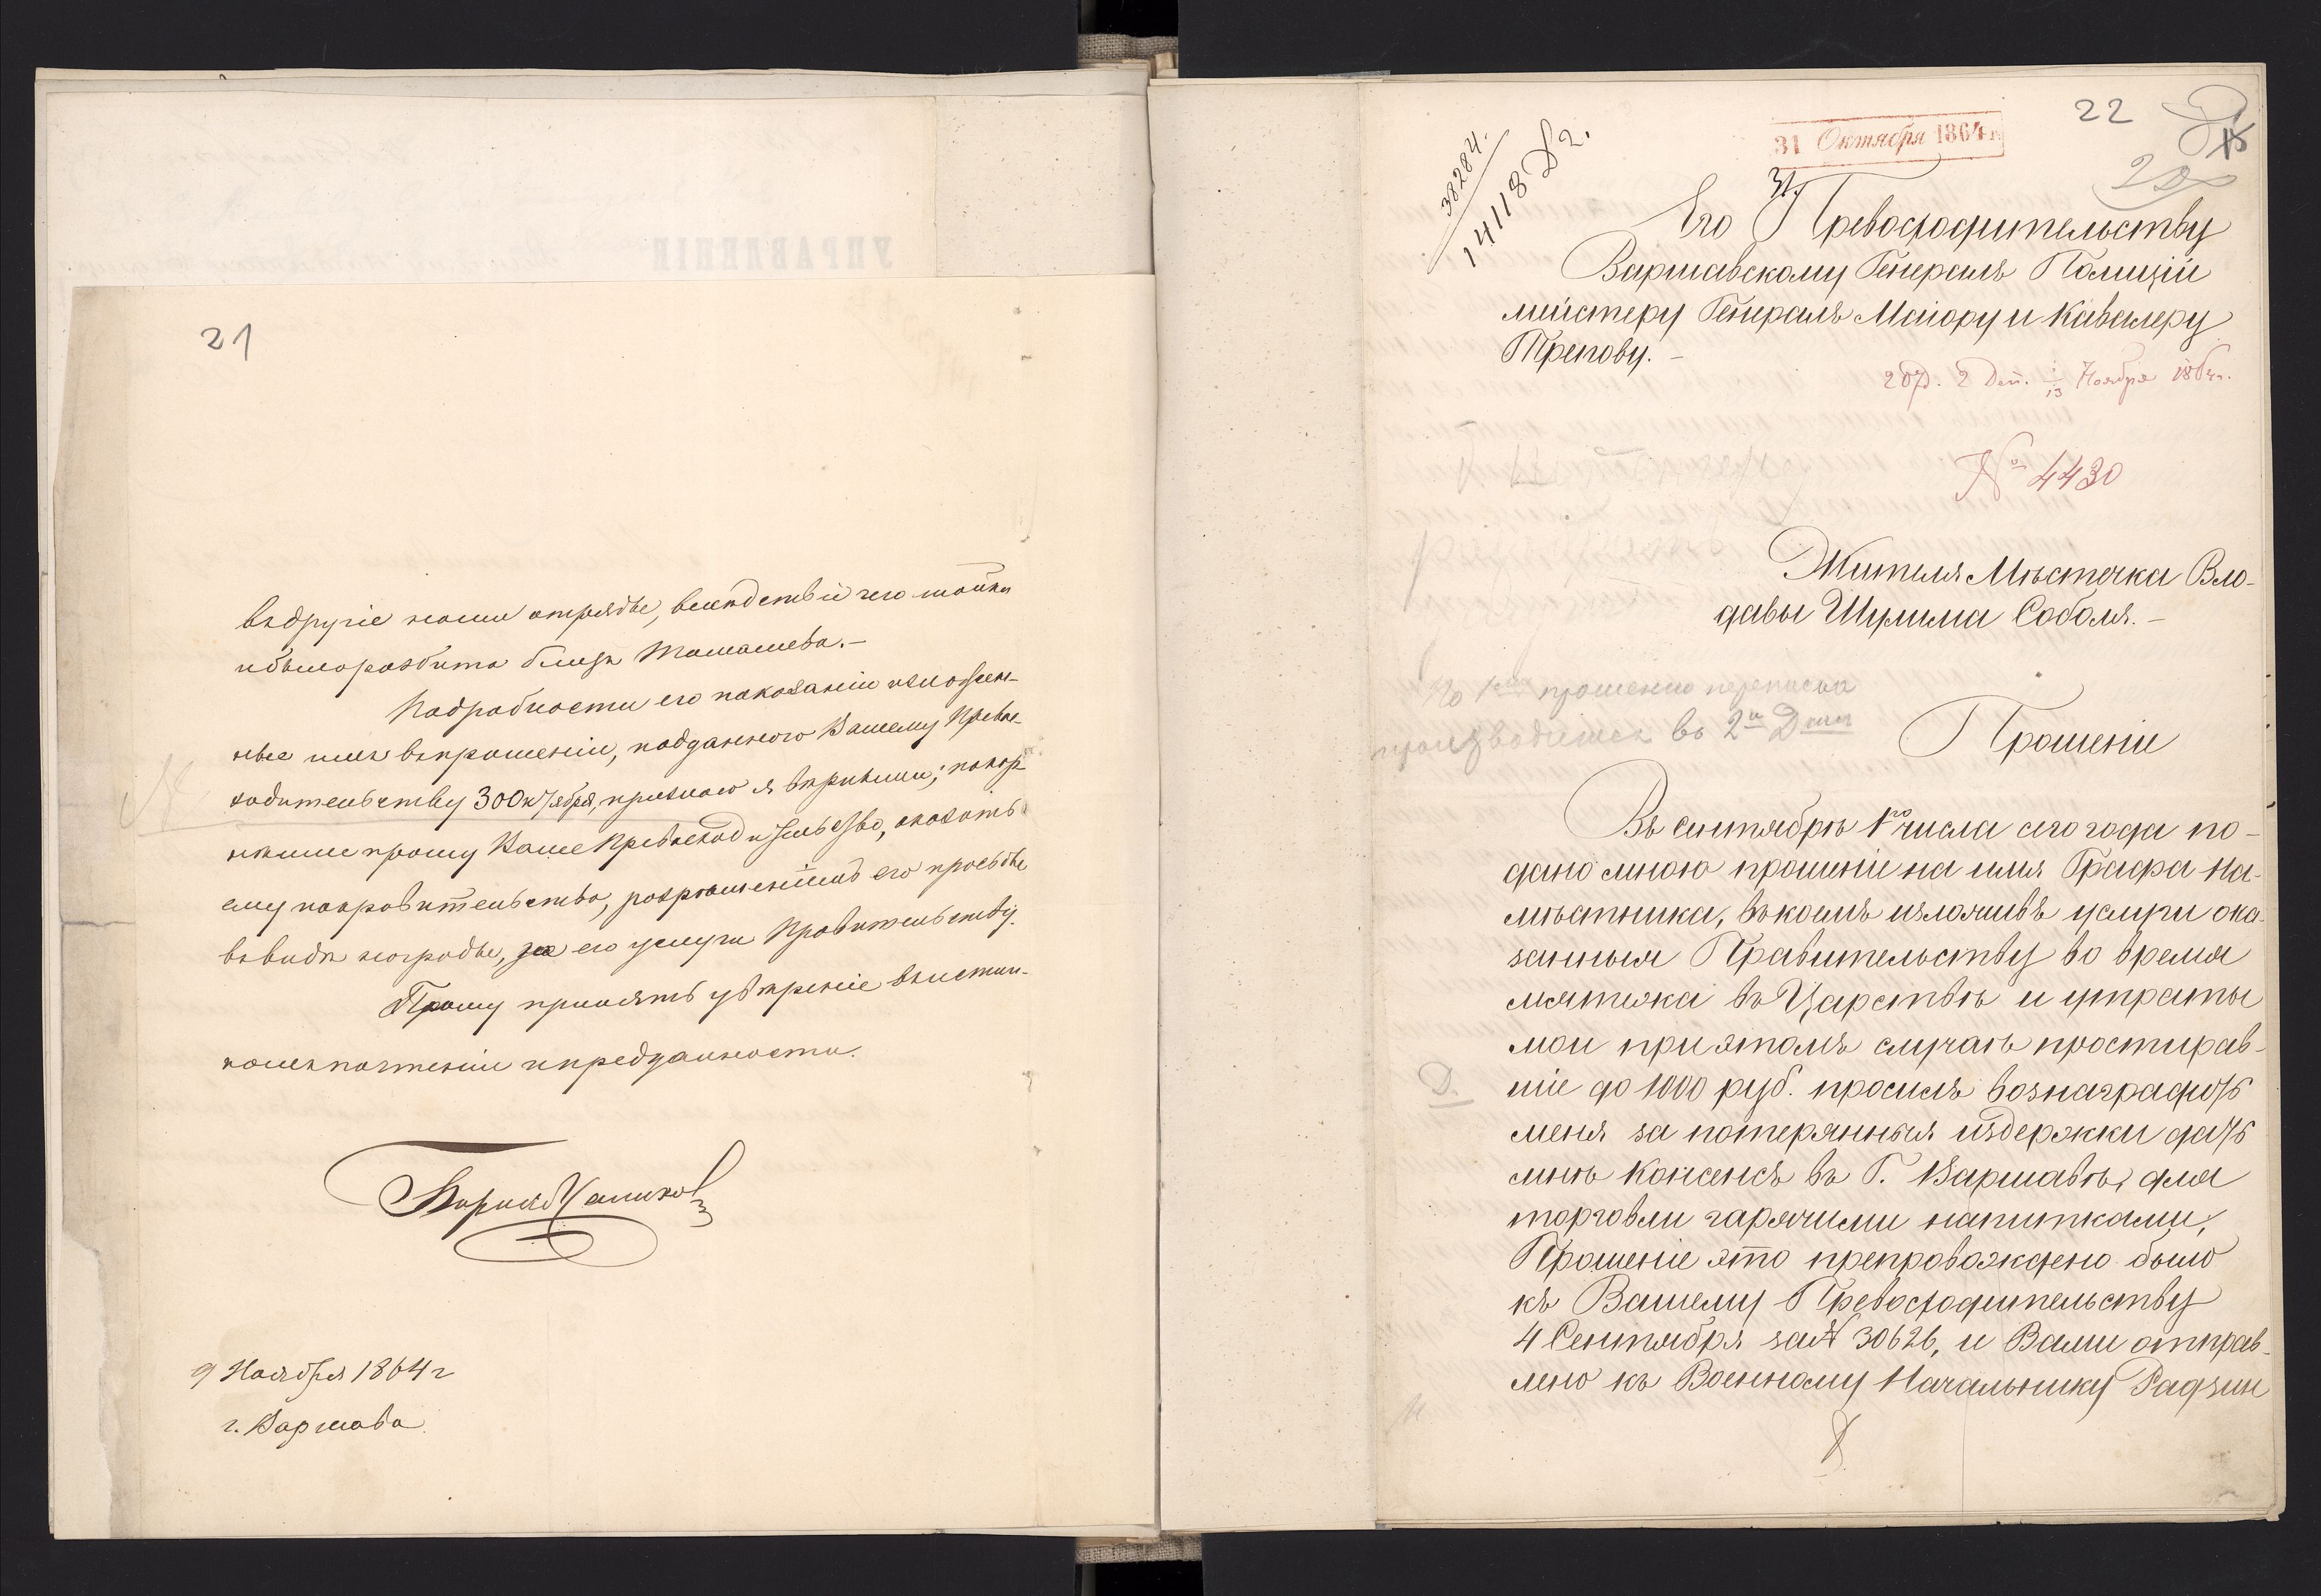 21
въ другіе наши отряды, вследствіе чего шайка
и было разбито близь Томашева.-
Подробности его показаніи изложен-
ные имъ въ прошеніи, поданного Вашему Превос-
ходительству 30 Октября, признаю я вѣрными; покор-
нѣйше прошу Ваше Превосходительство, оказать
ему покровительство, разрѣшеніемъ его просьбы
въ видѣ награды, за его услуги Правительству.
Прошу принять увѣреніе въ истин-
номъ почтеніи и преданности.
9 Ноября 1864 г
г. Варшава
22
31 Октября 1864 г.
38284.
14118 Д 2.
20
Его Превосходительству
Варшавскому Генералъ Полиціи
мейстеру Генералъ Маіору и Кавалеру
Трепову.-
2 Деп. 1/13 Ноября 1864 г.
№ 4430
Жителя Мѣстечка Вло-
давы Шулима Соболя.-
По 1му прошенію переписка
производится въ 2м Деп
Прошеніе
Въ сентябрѣ 1го числа сего года по-
дано мною прошеніе на имя Графа На-
мѣстника, въ коемъ изложивъ услуги ока-
занныя Правительству во время
мятежа въ Царствѣ и утраты
мои при этомъ случаѣ простирав-
шіе до 1000 руб. просилъ вознаградить
Д.
меня за потерянныя издержки дать
мнѣ консенсъ въ Г. Варшавѣ, для
торговли гарячими напитками,
Прошеніе это препровождено было
къ Вашему Превосходительству
4 Сентября за № 30626, и Вами отправ-
лено къ Военному Начальнику Радзин